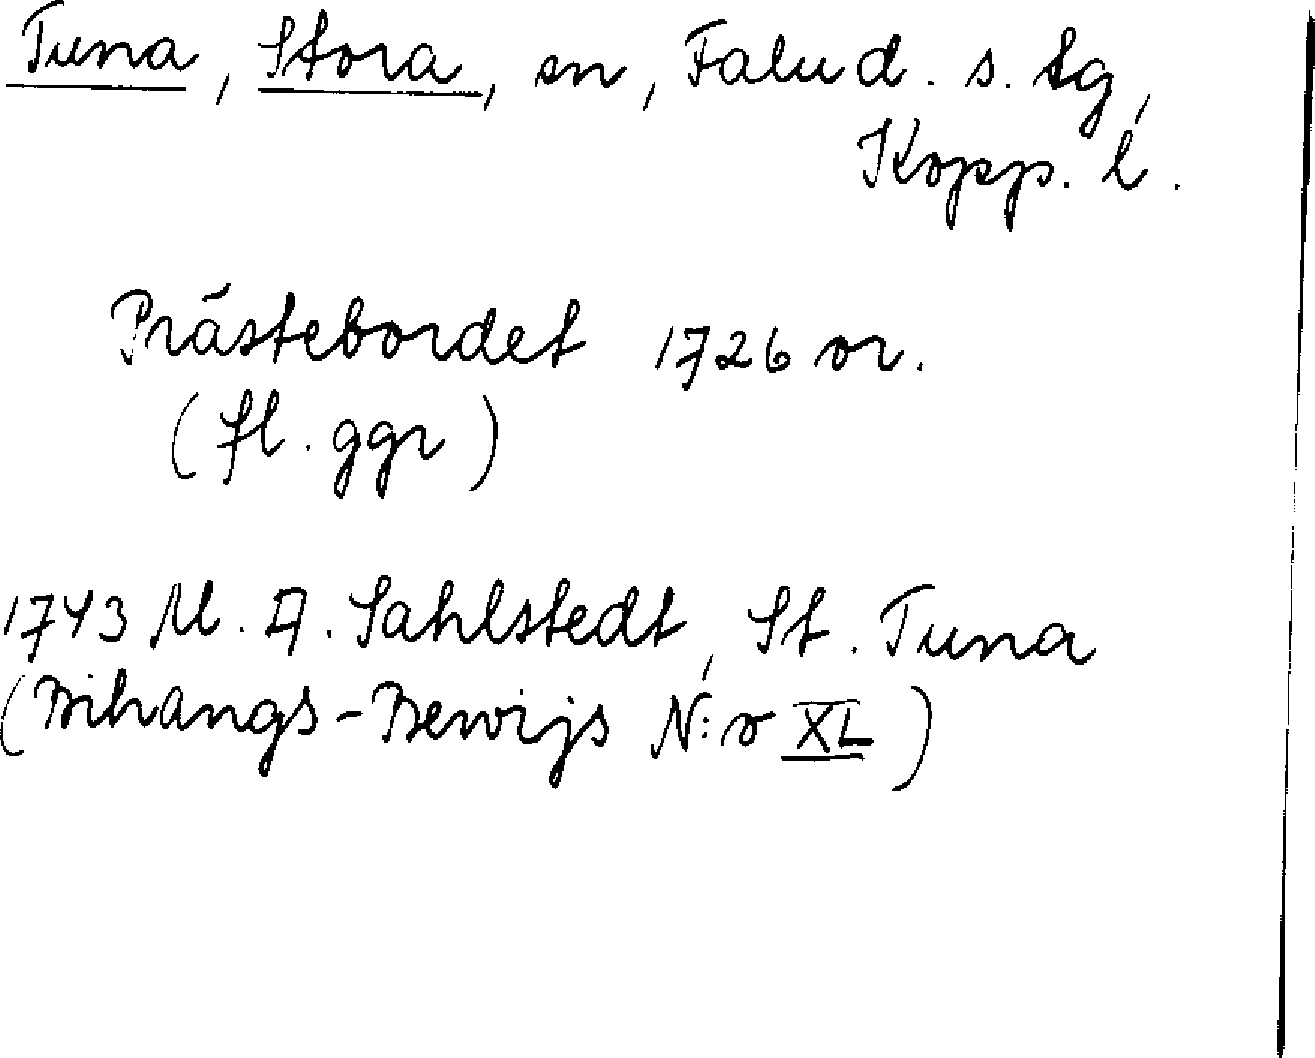 Tuna, Stora, sn, Falu d. s. tg,
Kopp. l.
Prästebordet 1726 or.
(fl. ggr)
1743 M. A. Sahlstedt, St. Tuna
(Bihangs-Bewijs N:o XL)